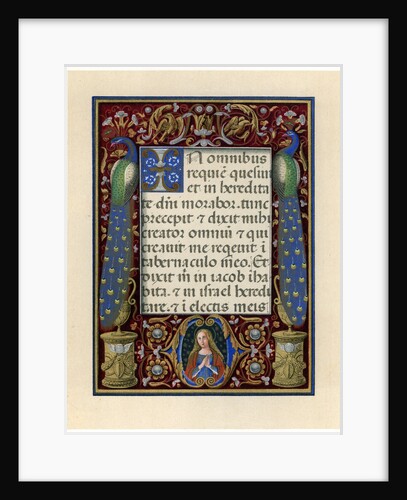 In omnibus
requiē quesiui
et in heredita
te dn̄i morabor. tunc
precepit & dixit mihi
creator omniū & qui
creauit me requeuit ī
tabernaculo meo. Et
dixit m̄ in iacob iha
bita. & in israel heredi
tare. & ī electis meis